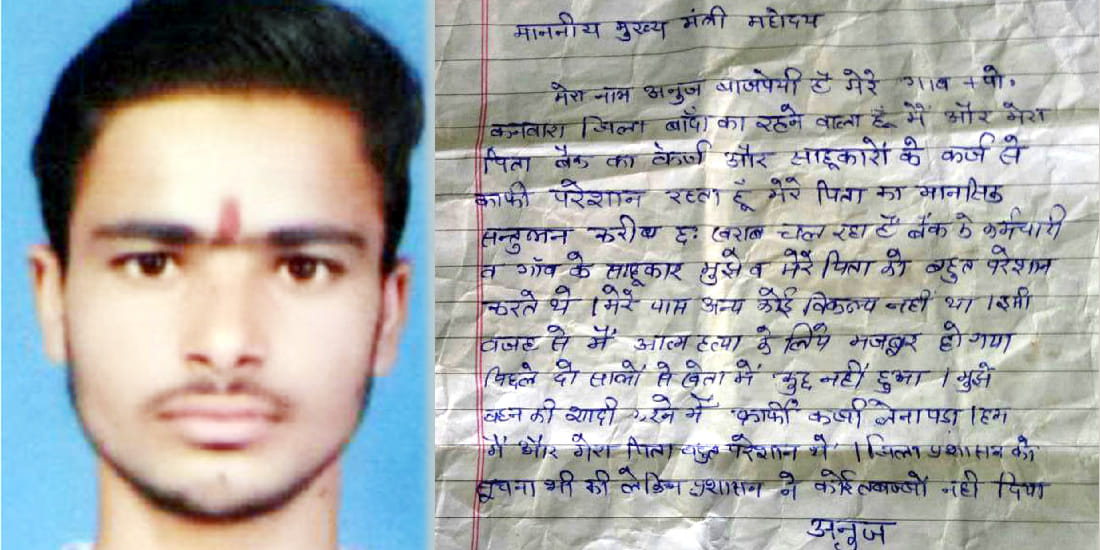 माननीय मुख्य मंत्री महोदय
मेरा नाम अनुज बाजपेयी है मेरे गाव + पो॰
कनवारा जिला बाँदा का रहने वाला हूँ मैं और मेरा
पिता बैंक का कर्ज और साहूकारों के कर्ज से
काफी परेशान रहता हूँ मेरे पिता का मानसिक
सन्तुलन करीब छः खराब चल रहा है बैंक के कर्मचारी
व गाँव के साहूकार मुझे व मेरे पिता को बहुत परेशान
करते थे । मेरे पास अन्य कोई विकल्प नहीं था । इसी
वजह से मैं आत्म हत्या के लिये मजबूर हो गया
पिछले दो सालों से खेता में कुछ नहीं हुआ । मुझे
बहन की शादी करने में काफी कर्जा लेना पडा । हम
मैं और मेरा पिता बहुत परेशान थे । जिला प्रशासन को
सूचना भी की लेकिन प्रशासन ने कोई तबज्जो नही दिया
अनुज